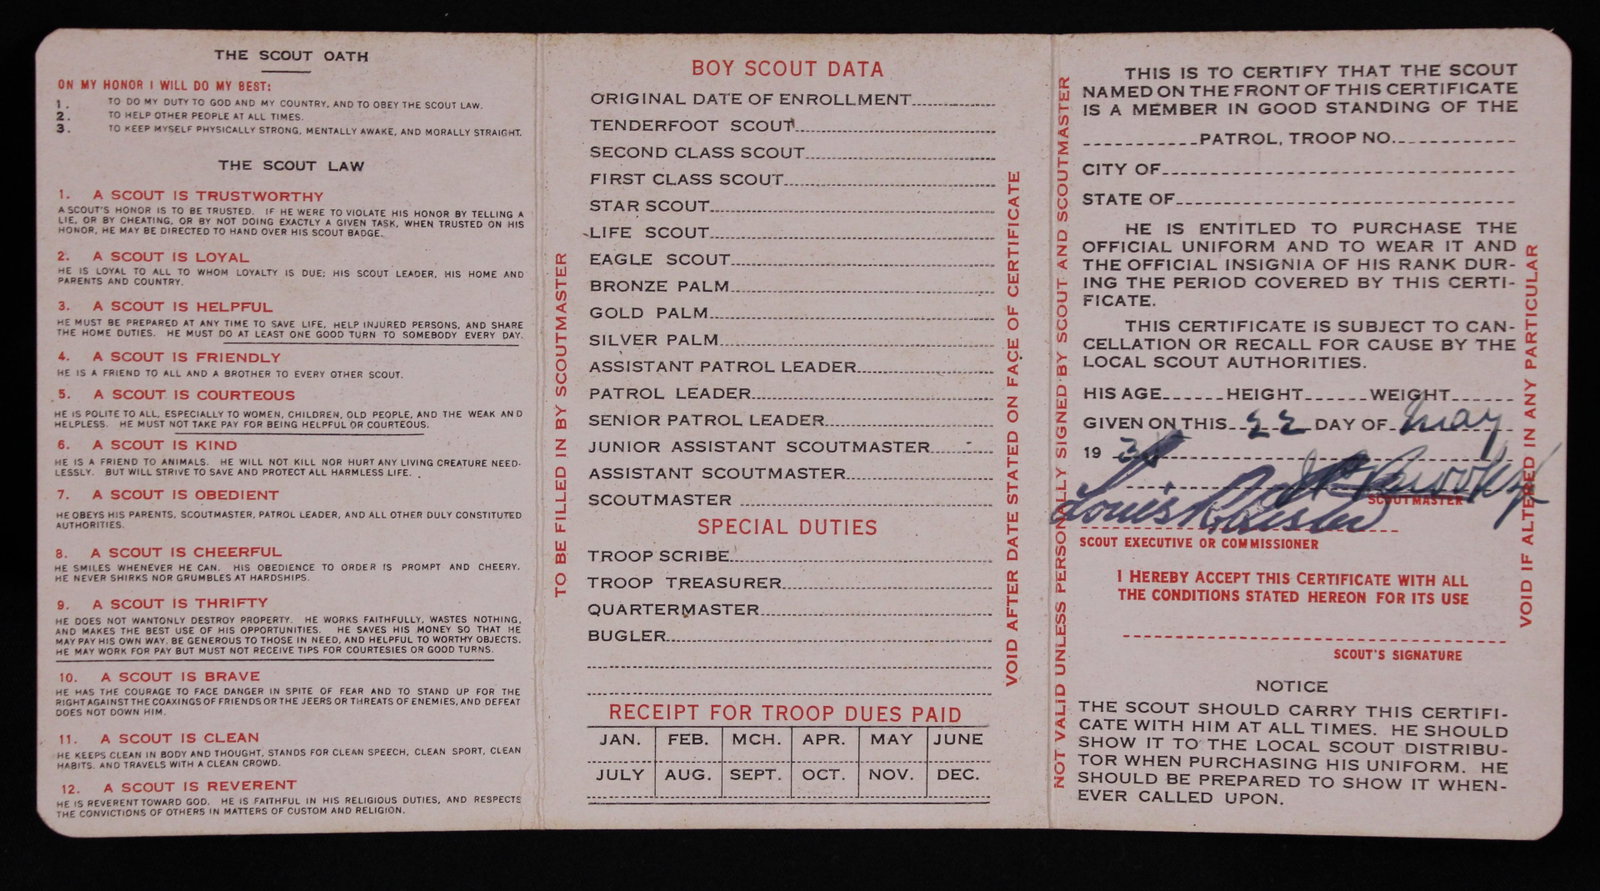 THE SCOUT OATH
ON MY HONOR I WILL DO MY BEST:
1. TO DO MY DUTY TO GOD AND MY COUNTRY, AND TO OBEY THE SCOUT LAW.
2. TO HELP OTHER PEOPLE AT ALL TIMES.
3. TO KEEP MYSELF PHYSICALLY STRONG, MENTALLY AWAKE, AND MORALLY STRAIGHT.
THE SCOUT LAW
1. A SCOUT IS TRUSTWORTHY
A SCOUT'S HONOR IS TO BE TRUSTED. IF HE WERE TO VIOLATE HIS HONOR BY TELLING A
LIE, OR BY CHEATING, OR BY NOT DOING EXACTLY A GIVEN TASK, WHEN TRUSTED ON HIS
HONOR, HE MAY BE DIRECTED TO HAND OVER HIS SCOUT BADGE.
2. A SCOUT IS LOYAL
HE IS LOYAL TO ALL TO WHOM LOYALTY IS DUE; HIS SCOUT LEADER, HIS HOME AND
PARENTS AND COUNTRY.
3. A SCOUT IS HELPFUL
HE MUST BE PREPARED AT ANY TIME TO SAVE LIFE, HELP INJURED PERSONS, AND SHARE
THE HOME DUTIES. HE MUST DO AT LEAST ONE GOOD TURN TO SOMEBODY EVERY DAY.
4. A SCOUT IS FRIENDLY
HE IS A FRIEND TO ALL AND A BROTHER TO EVERY OTHER SCOUT.
5. A SCOUT IS COURTEOUS
HE IS POLITE TO ALL, ESPECIALLY TO WOMEN, CHILDREN, OLD PEOPLE, AND THE WEAK AND
HELPLESS. HE MUST NOT TAKE PAY FOR BEING HELPFUL OR COURTEOUS.
6. A SCOUT IS KIND
HE IS A FRIEND TO ANIMALS. HE WILL NOT KILL NOR HURT ANY LIVING CREATURE NEED-
LESSLY. BUT WILL STRIVE TO SAVE AND PROTECT ALL HARMLESS LIFE.
7. A SCOUT IS OBEDIENT
HE OBEYS HIS PARENTS, SCOUTMASTER, PATROL LEADER, AND ALL OTHER DULY CONSTITUTED
AUTHORITIES.
8. A SCOUT IS CHEERFUL
HE SMILES WHENEVER HE CAN. HIS OBEDIENCE TO ORDER IS PROMPT AND CHEERY.
HE NEVER SHIRKS NOR GRUMBLES AT HARDSHIPS.
9. A SCOUT IS THRIFTY
HE DOES NOT WANTONLY DESTROY PROPERTY. HE WORKS FAITHFULLY, WASTES NOTHING,
AND MAKES THE BEST USE OF HIS OPPORTUNITIES. HE SAVES HIS MONEY SO THAT HE
MAY PAY HIS OWN WAY, BE GENEROUS TO THOSE IN NEED, AND HELPFUL TO WORTHY OBJECTS.
HE MAY WORK FOR PAY BUT MUST NOT RECEIVE TIPS FOR COURTESIES OR GOOD TURNS.
10. A SCOUT IS BRAVE
HE HAS THE COURAGE TO FACE DANGER IN SPITE OF FEAR AND TO STAND UP FOR THE
RIGHT AGAINST THE COAXINGS OF FRIENDS OR THE JEERS OR THREATS OF ENEMIES, AND DEFEAT
DOES NOT DOWN HIM.
11. A SCOUT IS CLEAN
HE KEEPS CLEAN IN BODY AND THOUGHT, STANDS FOR CLEAN SPEECH, CLEAN SPORT, CLEAN
HABITS, AND TRAVELS WITH A CLEAN CROWD.
12. A SCOUT IS REVERENT
HE IS REVERENT TOWARD GOD. HE IS FAITHFUL IN HIS RELIGIOUS DUTIES, AND RESPECTS
THE CONVICTIONS OF OTHERS IN MATTERS OF CUSTOM AND RELIGION.
TO BE FILLED IN BY SCOUTMASTER
BOY SCOUT DATA
ORIGINAL DATE OF ENROLLMENT
TENDERFOOT SCOUT
SECOND CLASS SCOUT
FIRST CLASS SCOUT
STAR SCOUT
LIFE SCOUT
EAGLE SCOUT
BRONZE PALM
GOLD PALM
SILVER PALM
ASSISTANT PATROL LEADER
PATROL LEADER
SENIOR PATROL LEADER
JUNIOR ASSISTANT SCOUTMASTER
ASSISTANT SCOUTMASTER
SCOUTMASTER
SPECIAL DUTIES
TROOP SCRIBE
TROOP TREASURER
QUARTERMASTER
BUGLER
RECEIPT FOR TROOP DUES PAID
JAN. FEB. MCH. APR. MAY JUNE
JULY AUG. SEPT. OCT. NOV. DEC.
VOID AFTER DATE STATED ON FACE OF CERTIFICATE
NOT VALID UNLESS PERSONALLY SIGNED BY SCOUT AND SCOUTMASTER
THIS IS TO CERTIFY THAT THE SCOUT
NAMED ON THE FRONT OF THIS CERTIFICATE
IS A MEMBER IN GOOD STANDING OF THE
PATROL, TROOP NO.
CITY OF
STATE OF
HE IS ENTITLED TO PURCHASE THE
OFFICIAL UNIFORM AND TO WEAR IT AND
THE OFFICIAL INSIGNIA OF HIS RANK DUR-
ING THE PERIOD COVERED BY THIS CERTI-
FICATE.
THIS CERTIFICATE IS SUBJECT TO CAN-
CELLATION OR RECALL FOR CAUSE BY THE
LOCAL SCOUT AUTHORITIES.
HIS AGE HEIGHT WEIGHT
GIVEN ON THIS 22 DAY OF May
19
SCOUTMASTER
Louis
SCOUT EXECUTIVE OR COMMISSIONER
I HEREBY ACCEPT THIS CERTIFICATE WITH ALL
THE CONDITIONS STATED HEREON FOR ITS USE
SCOUT'S SIGNATURE
NOTICE
THE SCOUT SHOULD CARRY THIS CERTIFI-
CATE WITH HIM AT ALL TIMES. HE SHOULD
SHOW IT TO THE LOCAL SCOUT DISTRIBU-
TOR WHEN PURCHASING HIS UNIFORM. HE
SHOULD BE PREPARED TO SHOW IT WHEN-
EVER CALLED UPON.
VOID IF ALTERED IN ANY PARTICULAR